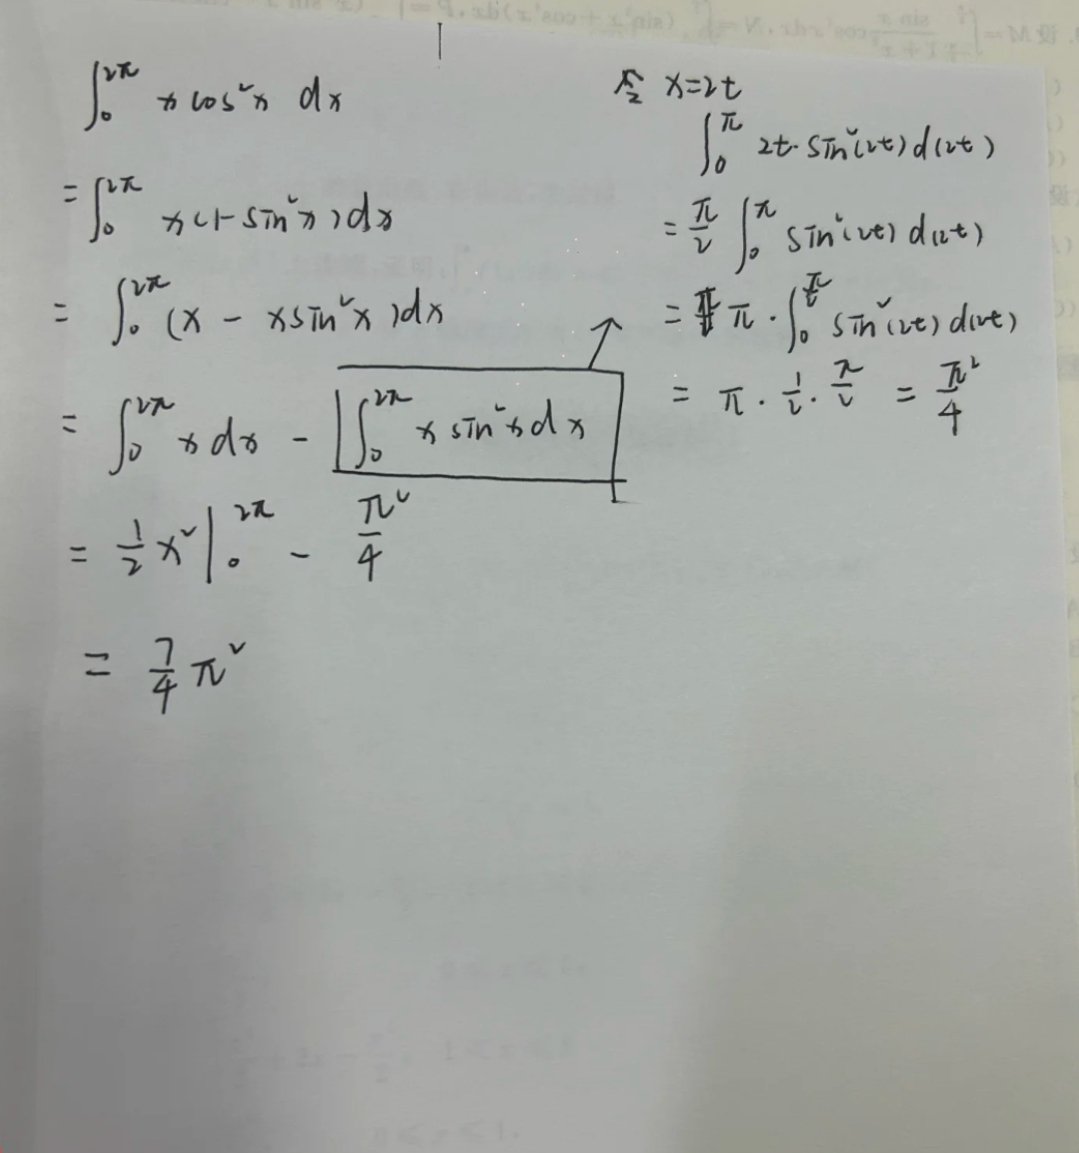 ∫₀^{2π} x cos²x dx
= ∫₀^{2π} x(1-sin²x)dx
= ∫₀^{2π} (x - xsin²x)dx
= ∫₀^{2π} x dx - ∫₀^{2π} x sin²x dx
= 1/2 x² |₀^{2π} - π²/4
= 7/4 π²
令 x=2t
∫₀^π 2t·sin²(2t)d(2t)
= π/2 ∫₀^π sin²(2t)d(2t)
= π·∫₀^{π/2} sin²(2t)d(2t)
= π·1/2·π/2 = π²/4